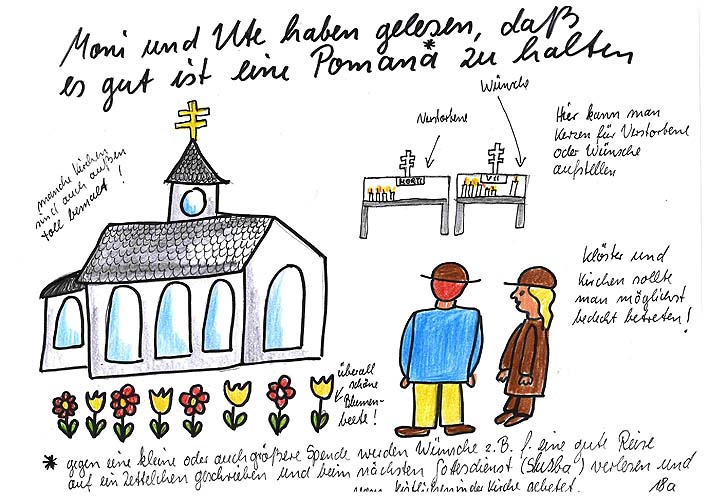 Moni und Ute haben gelesen, daß
es gut ist eine Pomana* zu halten
manche Kirchen
sind auch außen
toll bemalt !
Verstorbene
Wünsche
MORTI
VII
Hier kann man
Kerzen für Verstorbene
oder Wünsche
aufstellen
Klöster und
Kirchen sollte
man möglichst
bedeckt betreten!
überall
schöne
Blumen-
beete!
* gegen eine kleine oder auch größere Spende werden Wünsche z.B. f. eine gute Reise
auf ein Zettelchen geschrieben und beim nächsten Gottesdienst (Slujba) verlesen und
in der Kirche gebetet.
18a